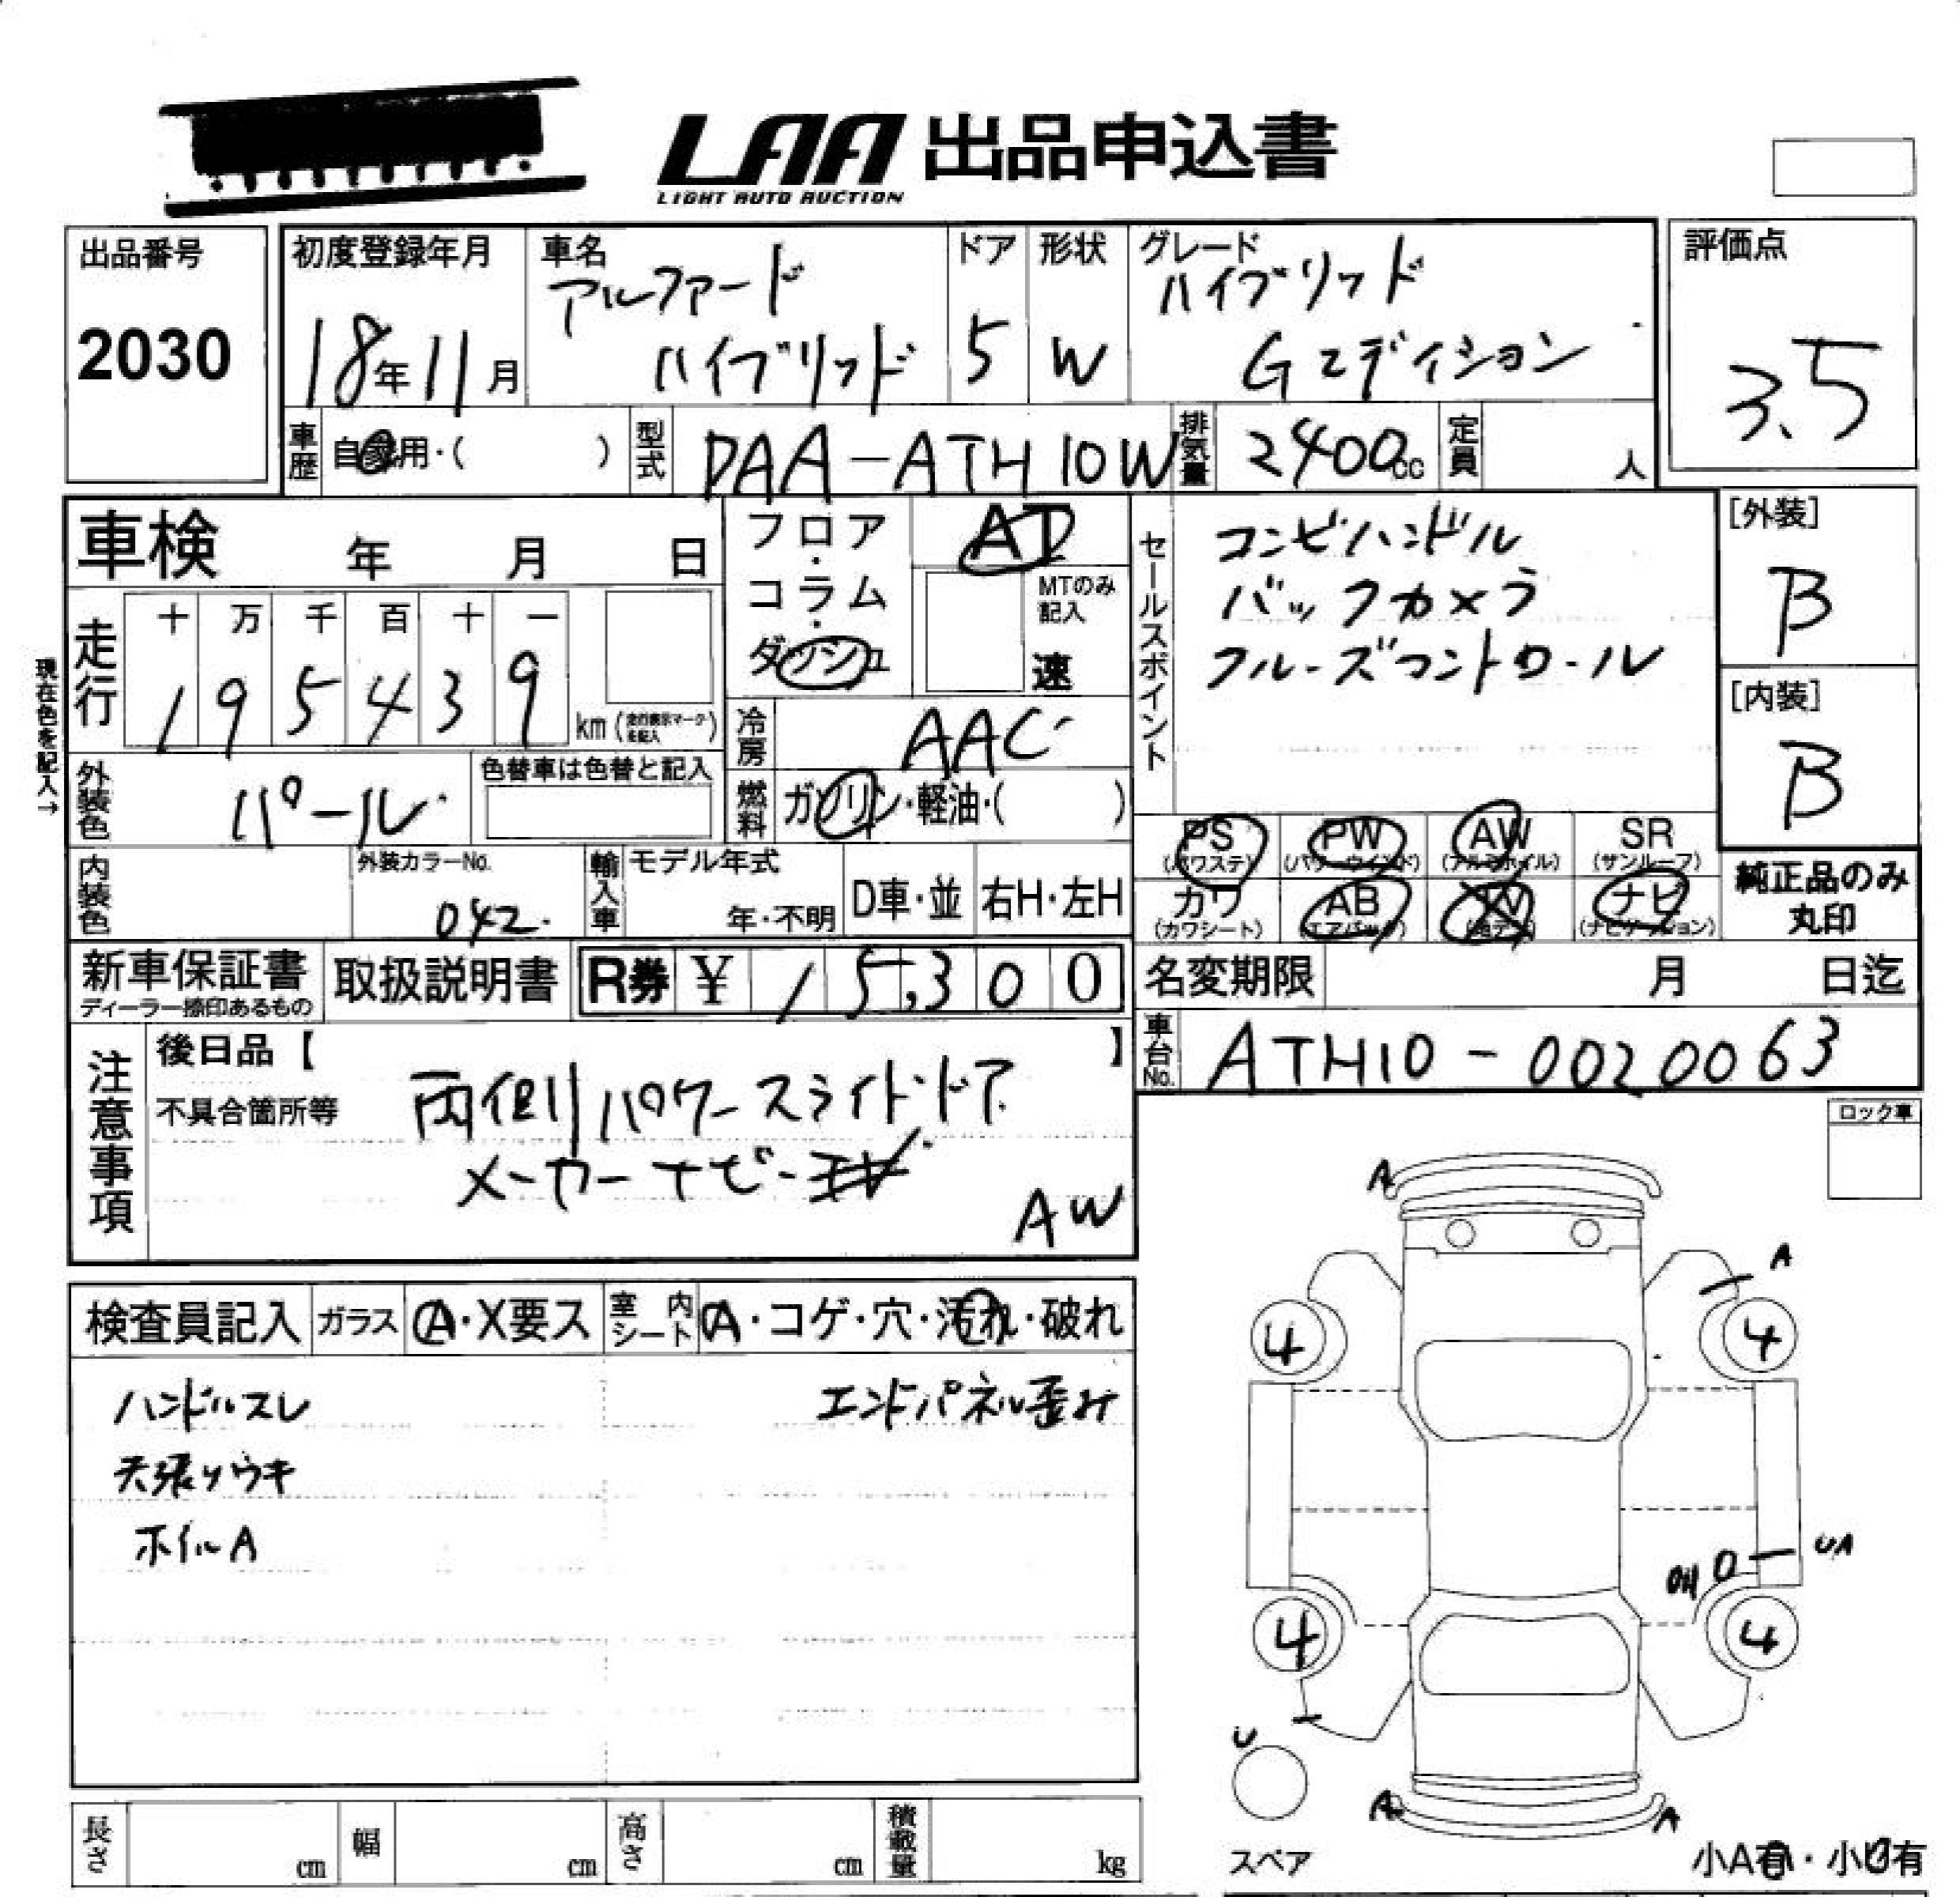 LAA 出品申込書
LIGHT AUTO AUCTION
出品番号
2030
初度登録年月
18年11月
車名
アルファード
ハイブリッド
ドア
5
形状
W
グレード
ハイブリッド
Gエディション
評価点
3.5
車歴
自家用・( )
型式
DAA-ATH10W
排気量
2400cc
定員
人
車検 年 月 日
フロア・コラム・ダッシュ
AT
MTのみ記入
速
セールスポイント
コンビハンドル
バックカメラ
クルーズコントロール
[外装]
B
[内装]
B
現在色を記入→
走行
十 万 千 百 十 一
1 9 5 4 3 9
km (走行表示マークを記入)
冷房
AAC
外装色
パール
色替車は色替と記入
燃料
ガソリン・軽油・( )
内装色
外装カラーNo.
042
輸入車
モデル年式
年・不明
D車・並
右H・左H
PS (パワステ)
PW (パワーウインド)
AW (アルミホイル)
SR (サンルーフ)
カワ (カワシート)
AB (エアバック)
ナビ (ナビゲーション)
純正品のみ
丸印
新車保証書
ディーラー捺印あるもの
取扱説明書
R券 ¥ 15,300
名変期限 月 日迄
車台No.
ATH10-0020063
注意事項
後日品【 】
不具合箇所等
両側パワースライドドア
メーカーナビ
AW
ロック車
検査員記入
ガラス
A・X要ス
室内シート
A・コゲ・穴・汚れ・破れ
ハンドルスレ
天張りウキ
ホイルA
エンドパネル歪み
A
A
4
4
UA
4
4
U
A
A
スペア
小A有・小U有
長さ cm
幅 cm
高さ cm
積載量 kg